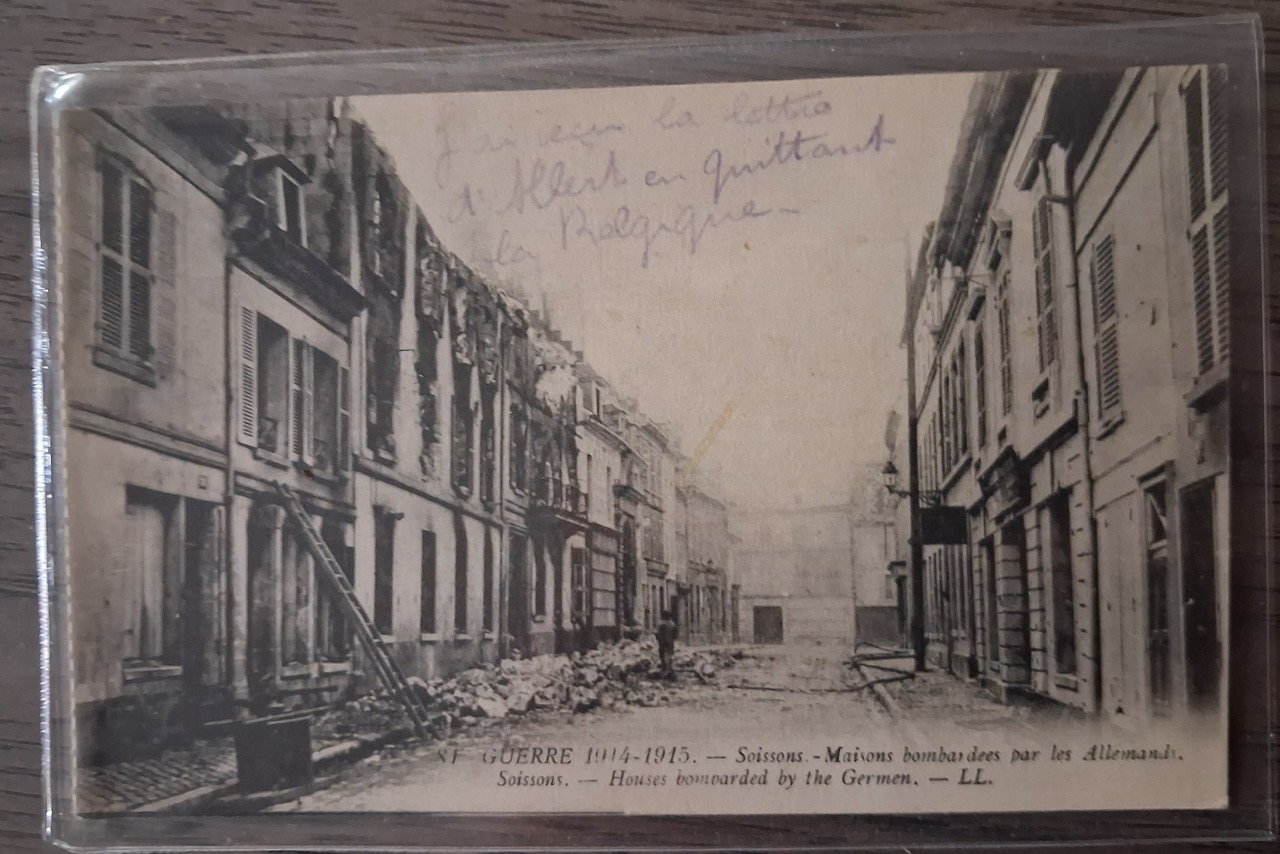 J'ai reçu la lettre
d'Albert en quittant
la Belgique -
GUERRE 1914-1915. — Soissons. - Maisons bombardees par les Allemands.
Soissons. — Houses bombarded by the Germen. — LL.